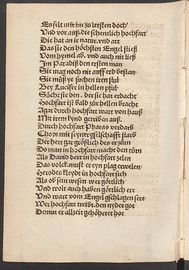 Es felt im im zu letsten doch
Vnd vor auß die schnelich hochfart
Die hat an ir natur vnd art
Das sie den höchsten Engel stieß
Vom hymel ab vnd auch nit ließ
Im Paradiß den ersten man
Sie mag noch nit auff erd bestan
Sie můß ye sůchen iren stůl
Bey Lucifer in hellen pfůl
Sůcht sie den der sie hat erdacht
Hochfart ist bald zur hellen bracht
Agar durch hochfart ware von hauß
Mit irem kynd getriben auß
Durch hochfart Pharao verdarb
Chore mit seyner gselschafft starb
Der her gar größlich des erzürn
Do man in hochfart macht den türn
Als Dauid dett in hochfart zelen
Das volck můst er eyn plag erwelen
Herodes kleydt in hochfart sich
Als ob sein wesen wer götlich
Vnd wolt auch haben götlich ere
Vnd wart vom Engel gschlagen sere
Wer hochfart treibt den nydert got
Demut er alltzeit gehöhert hat